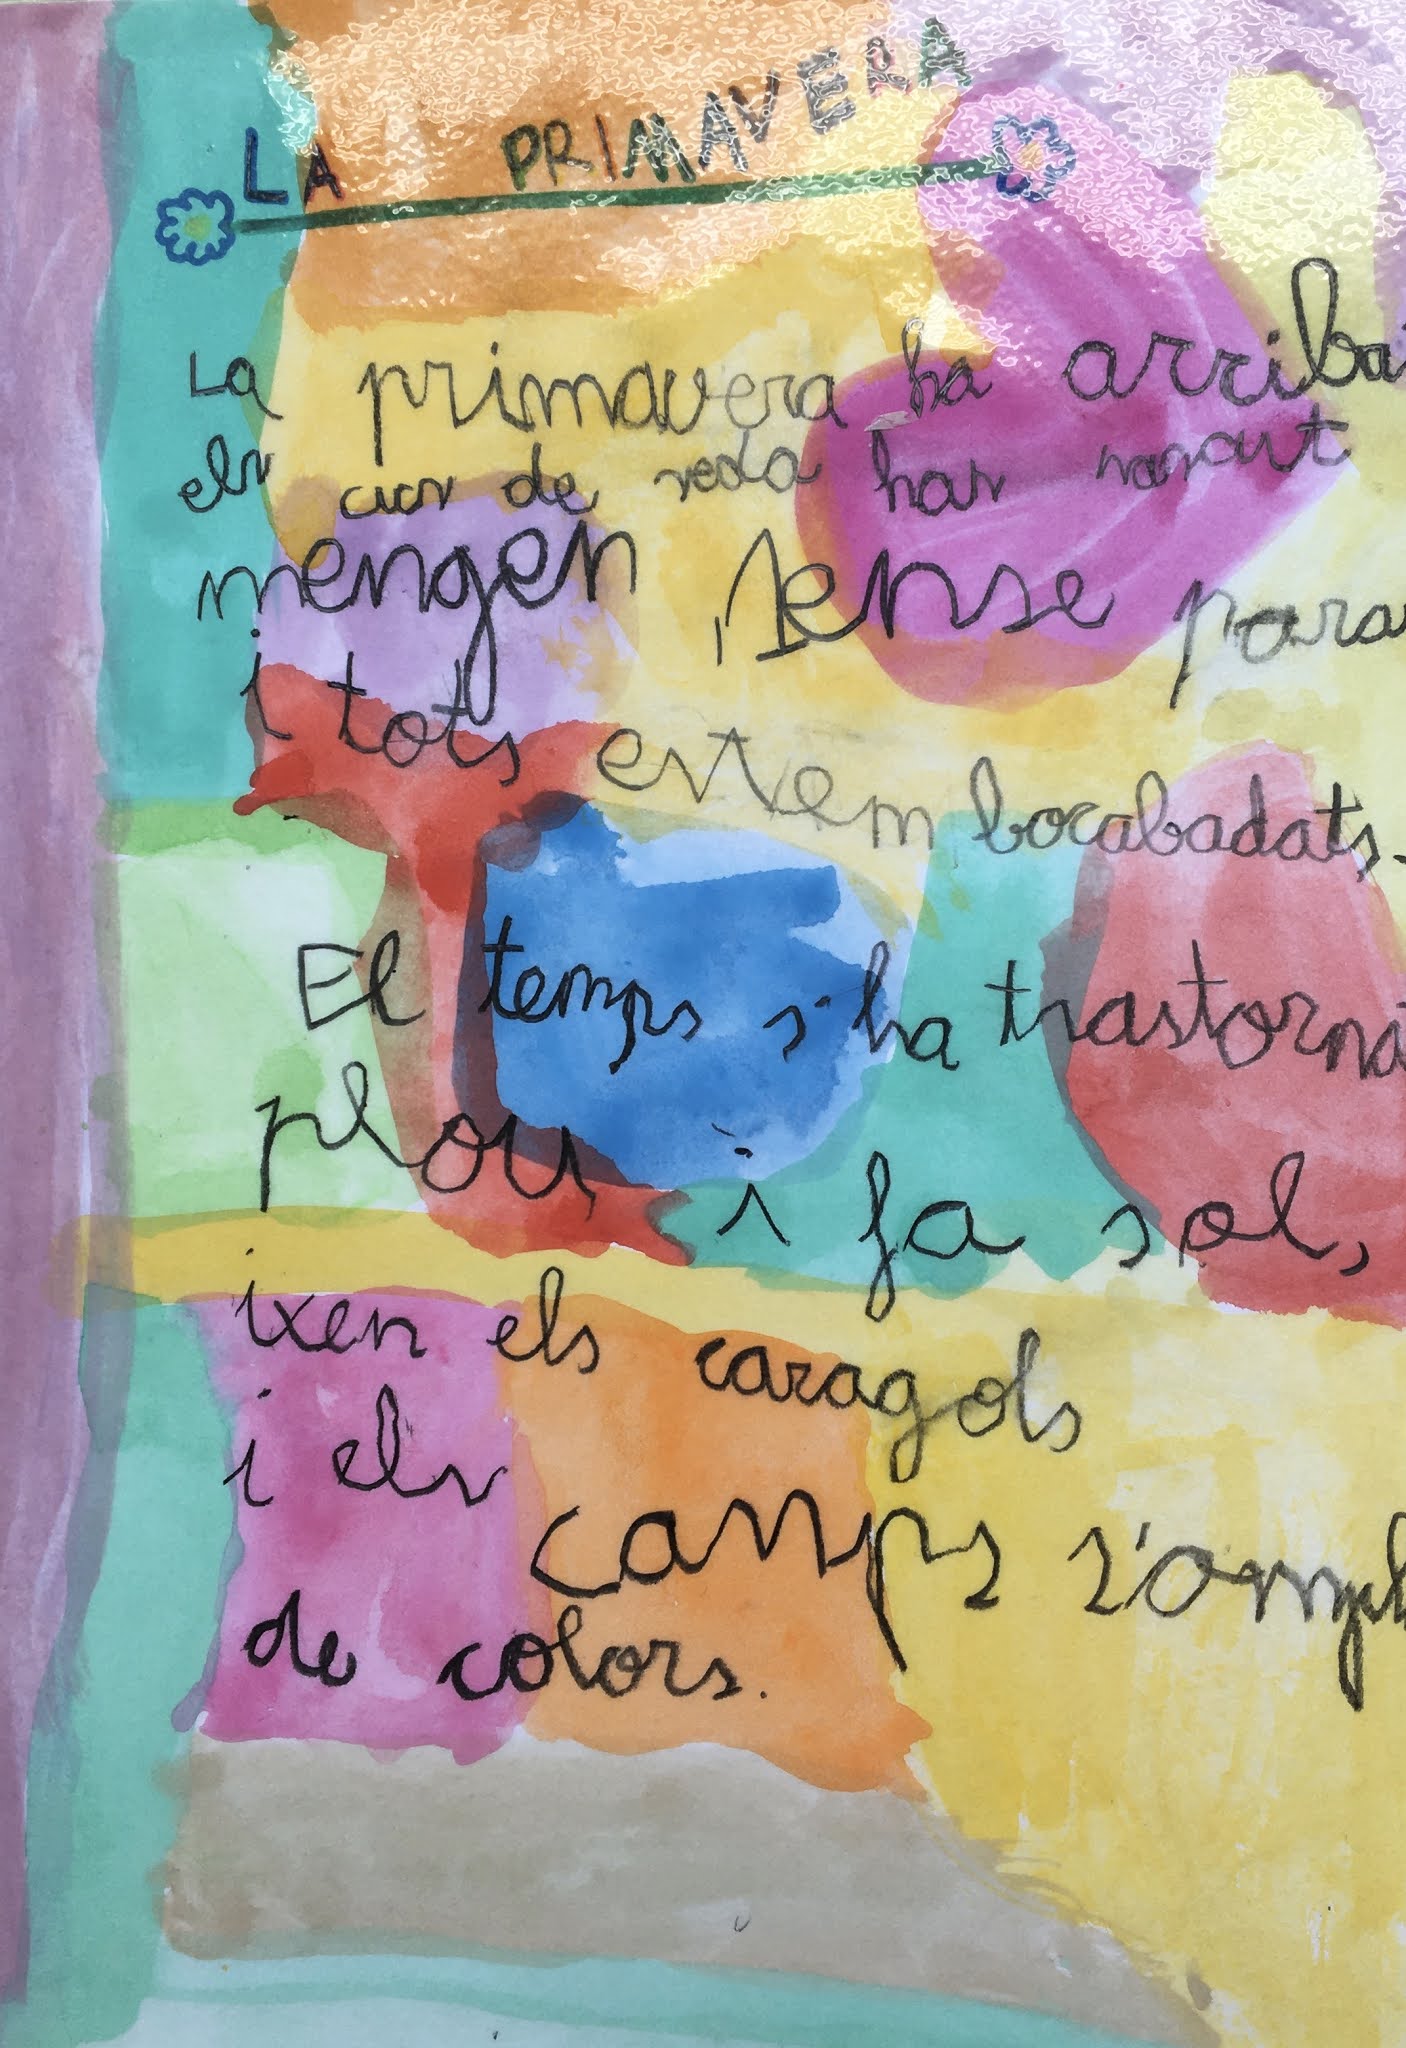 LA PRIMAVERA
La primavera ha arriba
els cucs de seda han nascut
mengen sense para
i tots estem bocabadats.
El temps s'ha trastorna
plou i fa sol,
ixen els caragols
i els camps s'ompl
de colors.